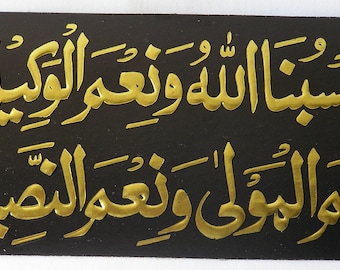 سبنا الله ونعم الوكيـ
ـم المولى ونعم النصيـ